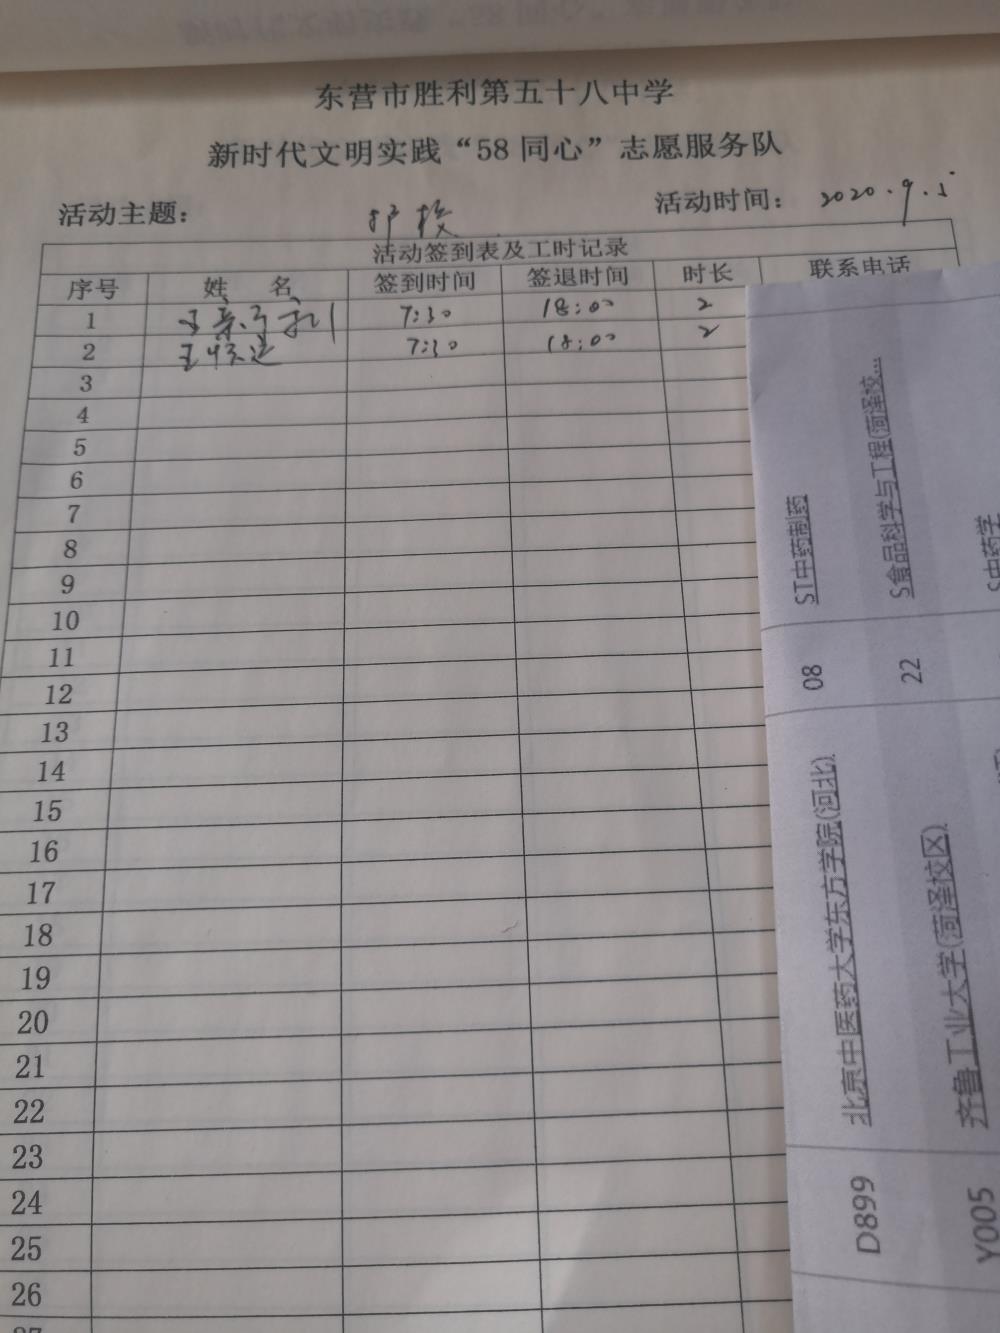 东营市胜利第五十八中学
新时代文明实践“58同心”志愿服务队
活动主题： 护校 活动时间： 2020.9.5
活动签到表及工时记录
序号 姓 名 签到时间 签退时间 时长 联系电话
1 7:30 18:00 2
2 王 7:30 18:00 2
3
4
5
6
7
8
9
10
11
12
13
14
15
16
17
18
19
20
21
22
23
24
25
26
27
D899 北京中医药大学东方学院(河北) 08 ST中药制药
Y005 齐鲁工业大学(菏泽校区) 22 S食品科学与工程(菏泽校...
S中药学